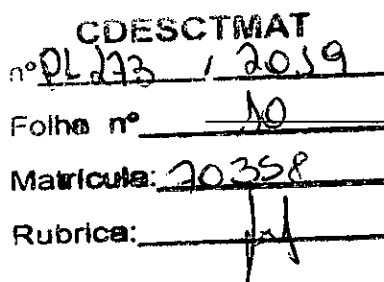 CDESCTMAT
nº PL 273 / 2019
Folha nº 10
Matrícula: 70358
Rubrica: